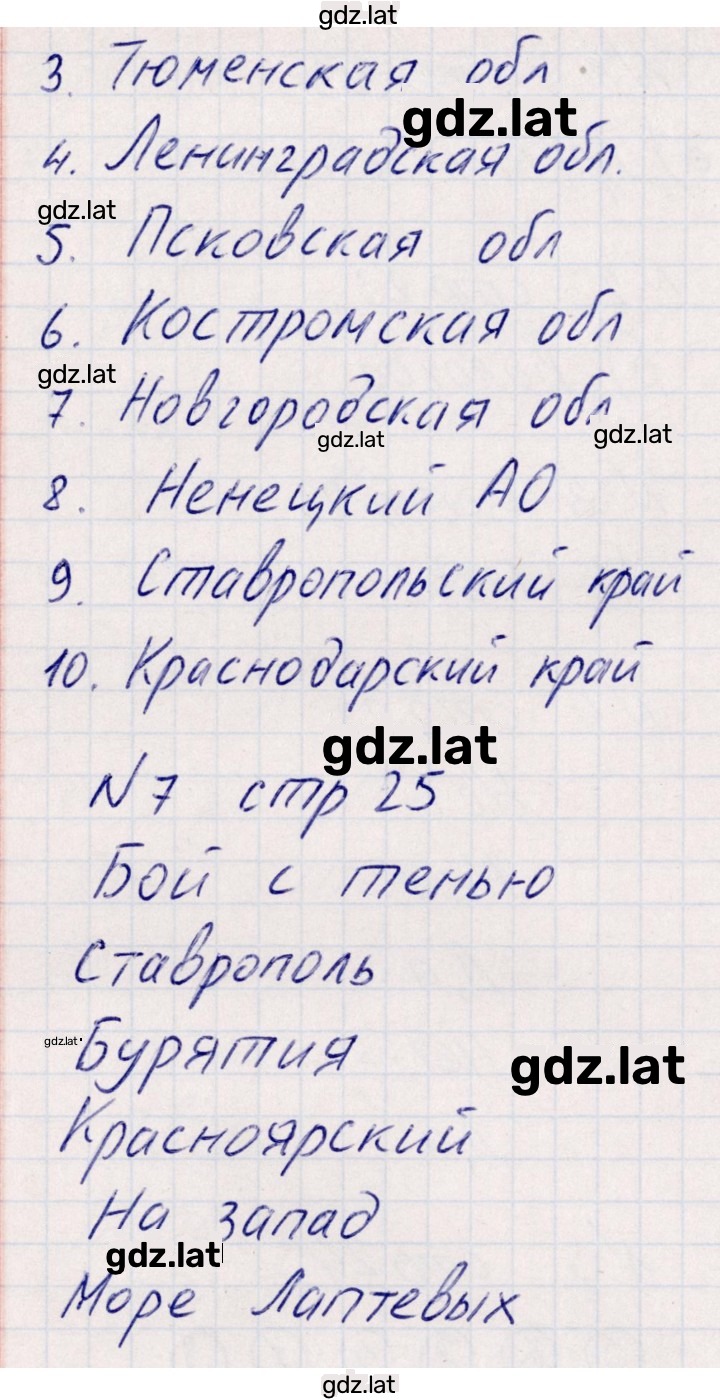 gdz.lat
3. Тюменская обл
gdz.lat
4. Ленинградская обл.
gdz.lat
5. Псковская обл
6. Костромская обл
gdz.lat
7. Новгородская обл
gdz.lat
gdz.lat
8. Ненецкий АО
9. Ставропольский край
10. Краснодарский край
gdz.lat
N7 стр 25
Бой с тенью
Ставрополь
gdz.lat
Бурятия
gdz.lat
Красноярский
На запад
gdz.lat
Море Лаптевых
gdz.lat